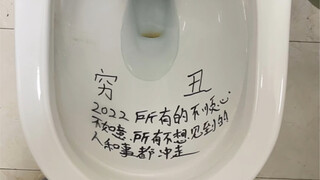 穷 丑
2022所有的不顺心.
不如意.所有不想见到的
人和事都冲走